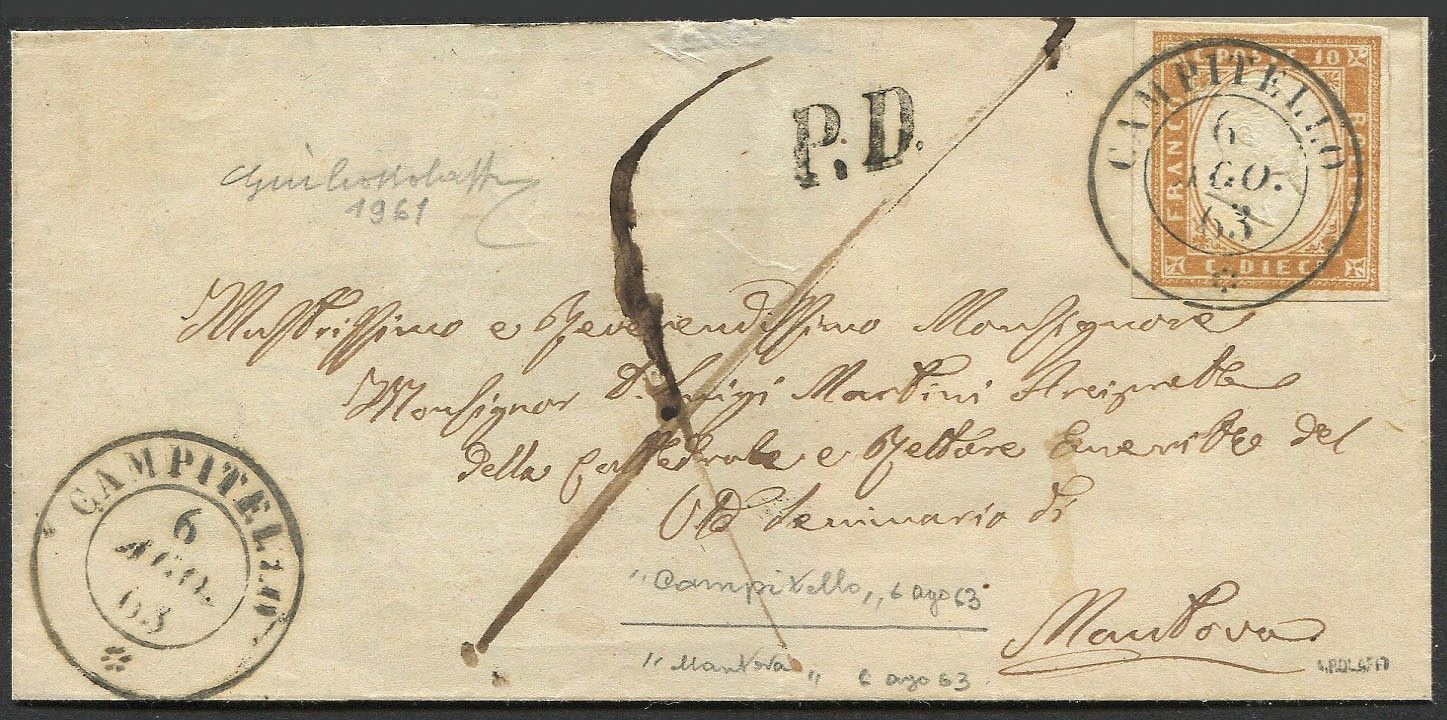 P.D.
C. POSTE 10
FRANCO
BOLLO
C. DIECI
CAMPITELLO
6
AGO.
63
1961
Illustrissimo e Reverendissimo Monsignore
Monsignor D. Luigi Martini Arciprette
della Cattedrale e Rettore Emerito del
Seminario di
Mantova
CAMPITELLO
6
AGO.
63
"Campitello" 6 ago 63
"Mantova" 6 ago 63